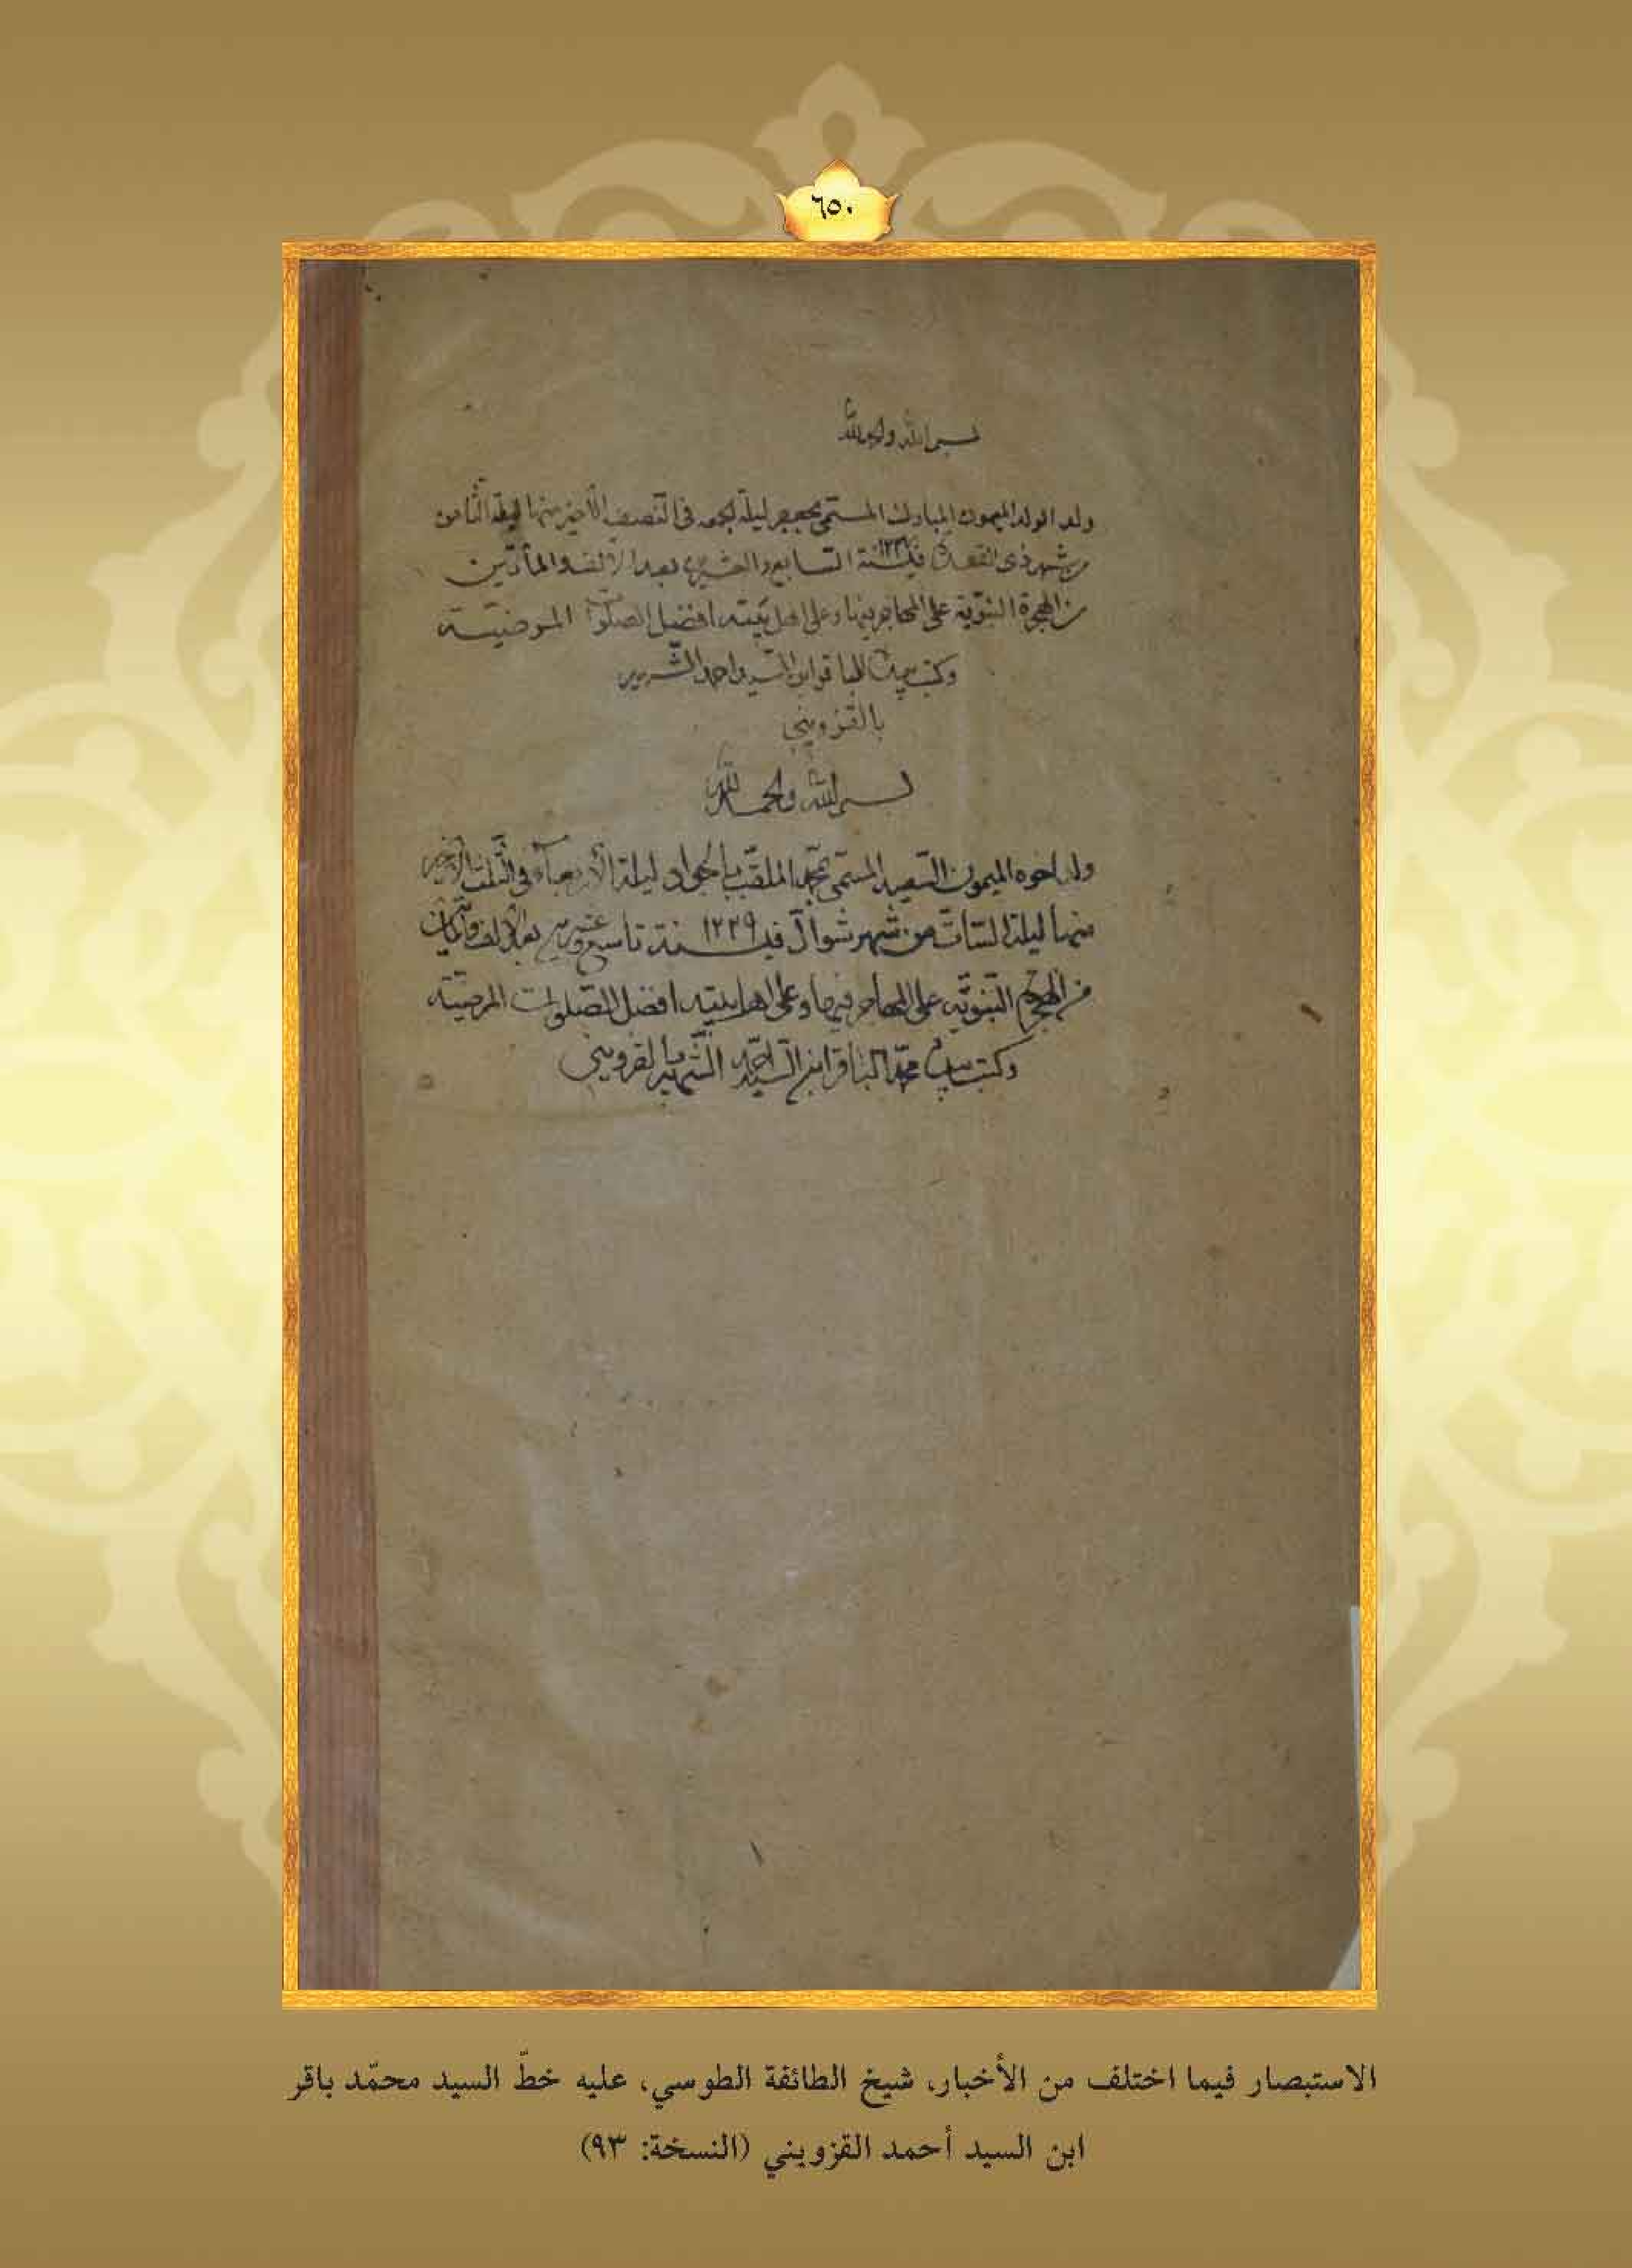 ٦٥٠
بسم الله والحمد لله
ولد الولد الميمون المبارك المسمى بجعفر ليلة الجمعة في النصف الأخير منها ليلة الثامن
من شهر ذي القعدة في سنة ١٢٢٧ السابع والعشرين بعد الألف والمأتين
من الهجرة النبوية على المهاجر فيها وعلى اهل بيته افضل الصلوة المرضيته
وكتب بيده الباقر ابن السيد احمد الشهير
بالقزويني
بسم الله والحمد لله
ولد اخوه الميمون السعيد المسمى بمحمد الملقب بالجواد ليلة الأربعاء في الثلث الأخير
منها ليلة السات من شهر شوال في سنة ١٢٢٩ تاسع وعشرين بعد الألف والمأتين
من الهجرة النبوية على المهاجر فيها وعلى اهل بيته افضل الصلوات المرضيته
وكتب بيده محمد الباقر ابن السيد احمد الشهير بالقزويني
الاستبصار فيما اختلف من الأخبار، شيخ الطائفة الطوسي، عليه خطّ السيد محمّد باقر
ابن السيد أحمد القزويني (النسخة: ٩٣)